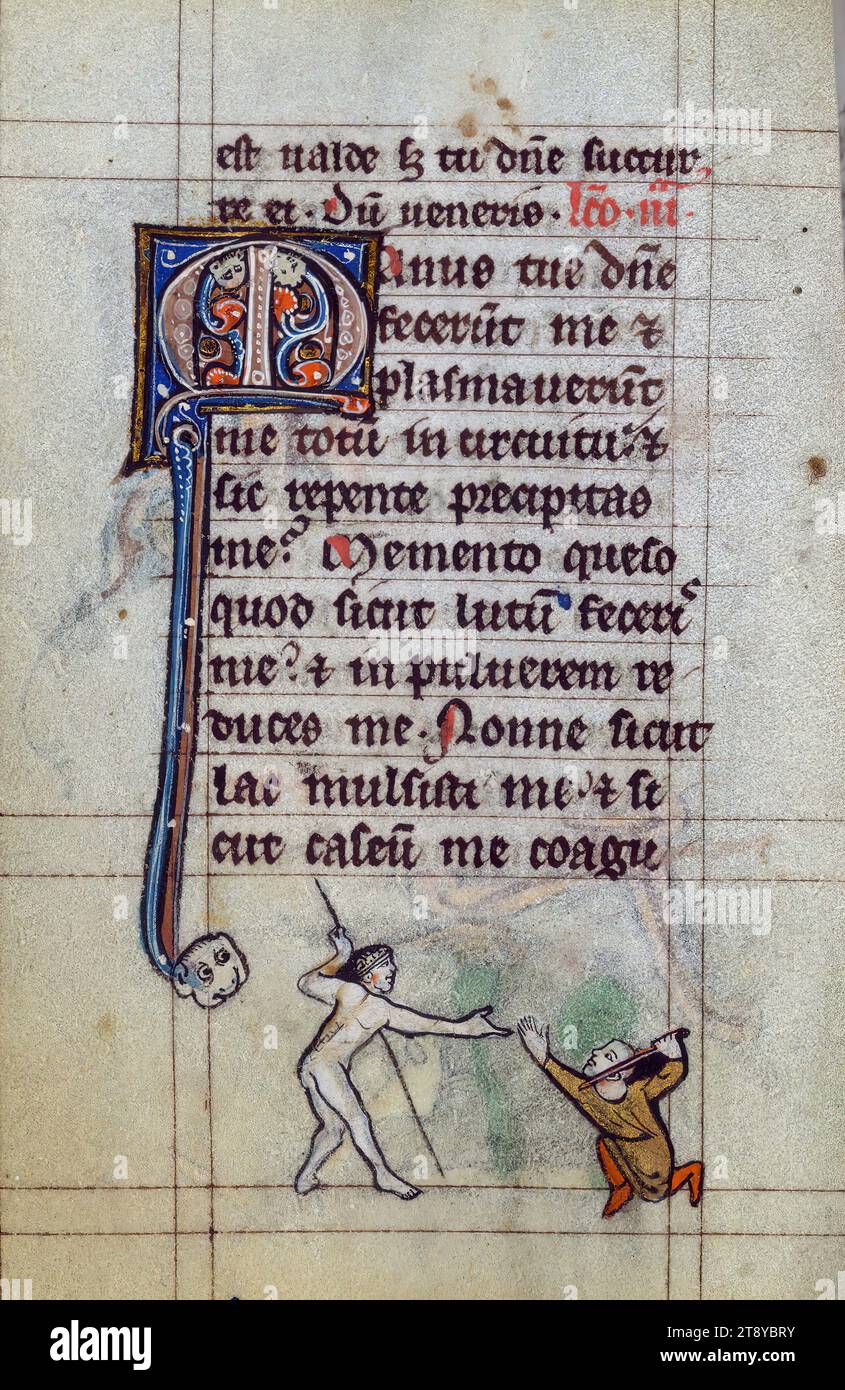 est ualde sꝫ tu dn̄e succur
re ei. Dū ueneris. lc̄o. iii.
Manus tue dn̄e
fecerūt me ⁊
plasmauerūt
me totū in circuitu: ⁊
sic repente precipitas
me? Memento queso
quod sicut lutū feceris
me? ⁊ in puluerem re
duces me. Nonne sicut
lac mulsisti me? ⁊ si
cut caseū me coagu
alamy
Image ID: 2T8YBRY
www.alamy.com